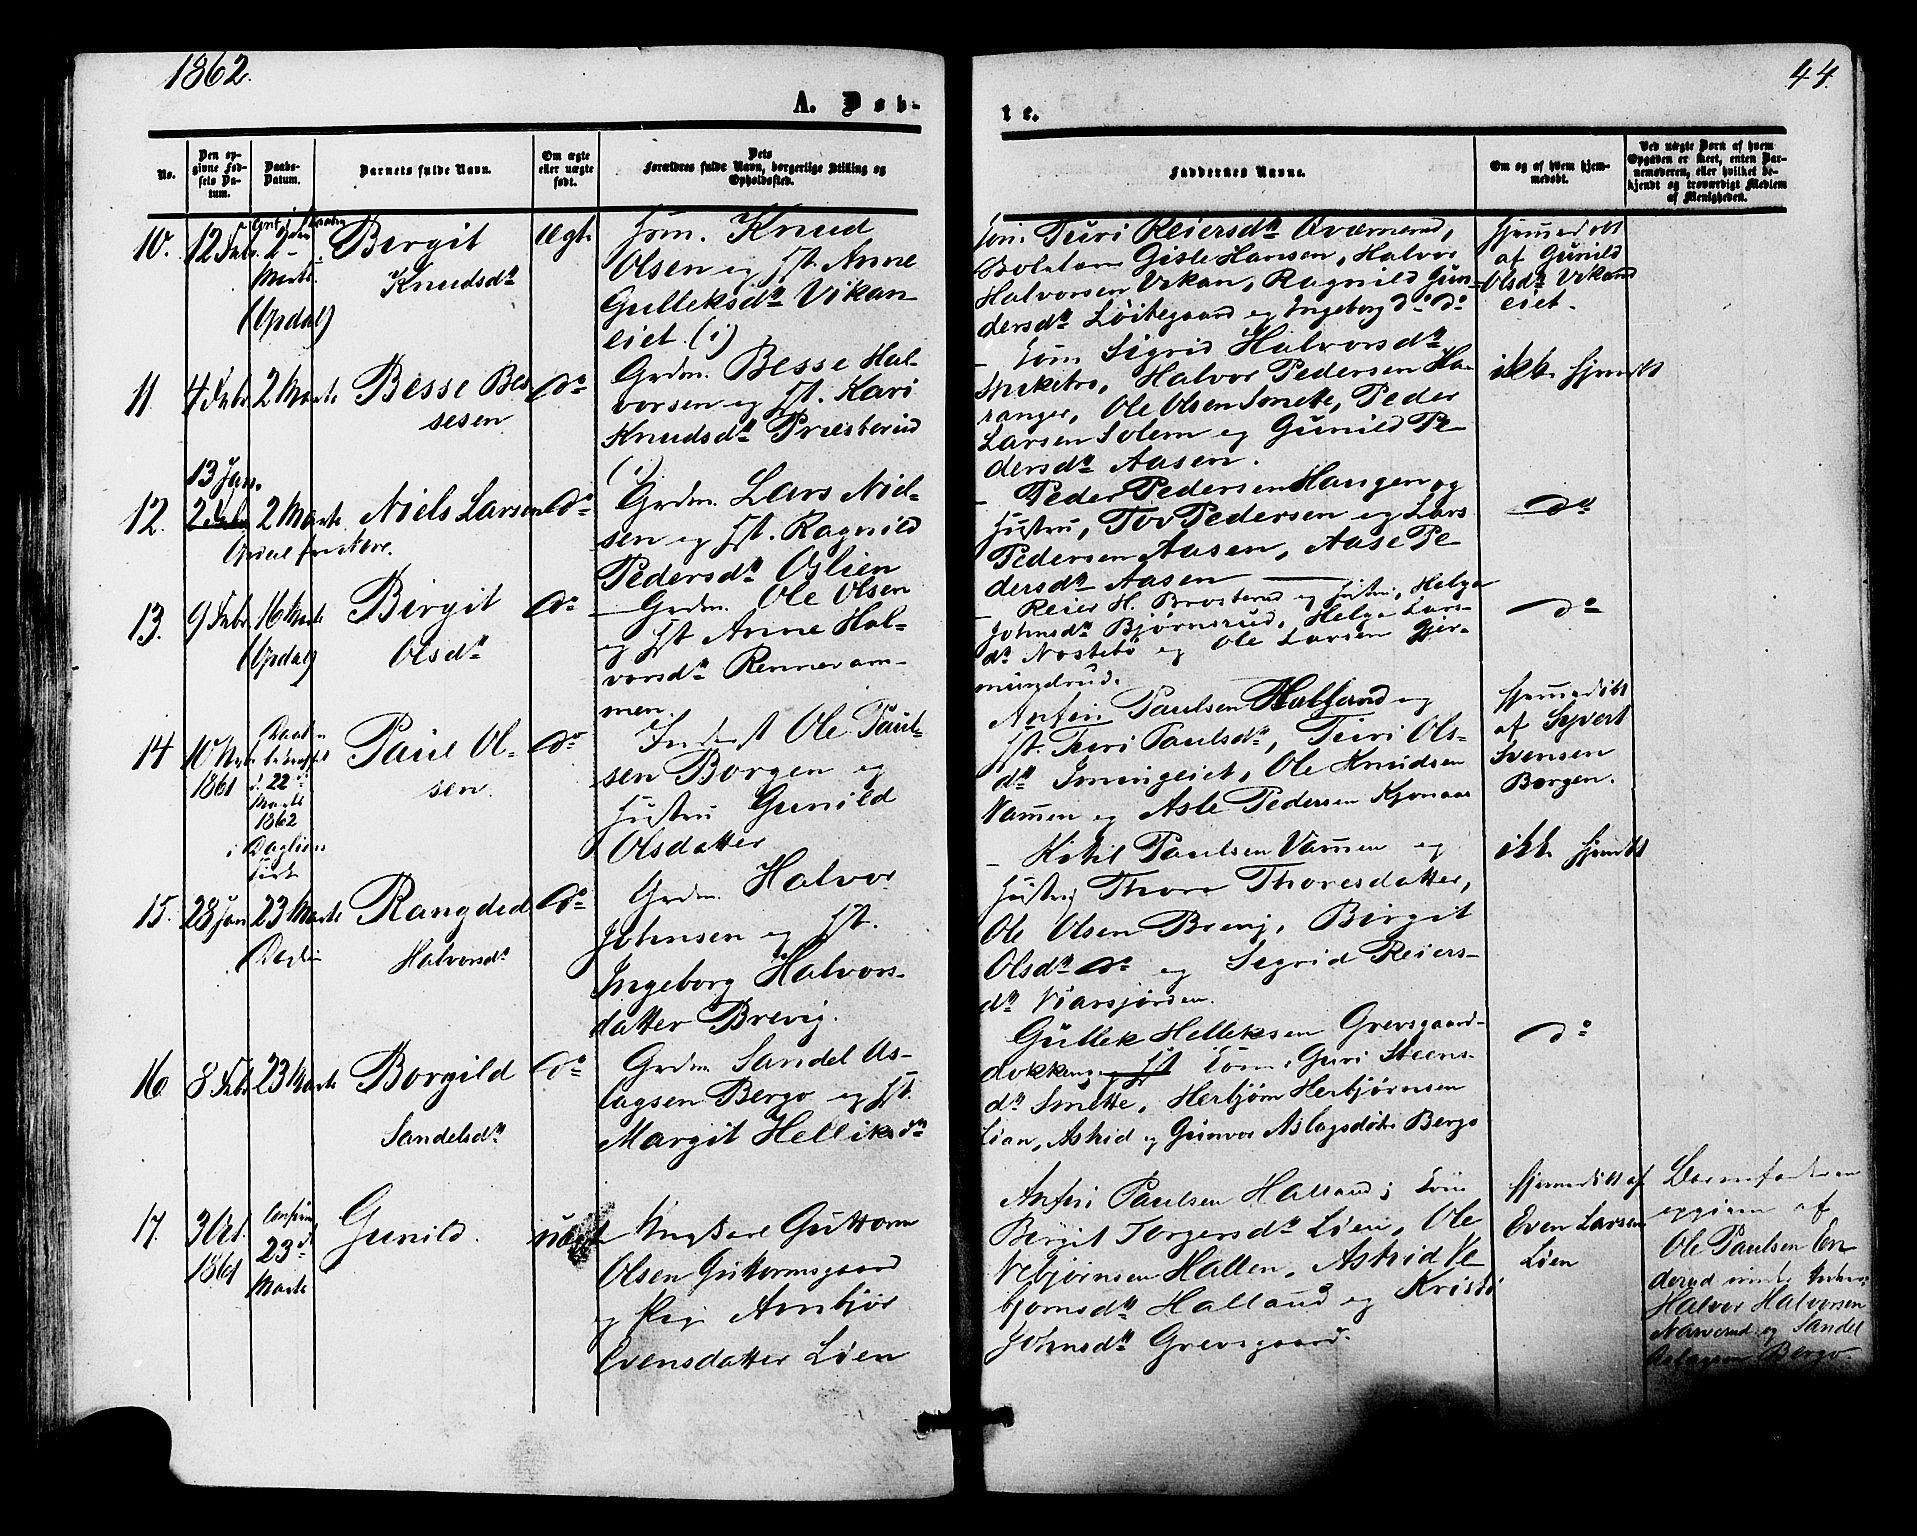 1862.
44.
A. Døb-
te.
No.
Den op-
givne Fød-
sels Da-
tum.
Daabs-
Datum.
Barnets fulde Navn.
Om ægte
eller uægte
født.
Dets
Forældres fulde Navn, borgerlige Stilling og
Opholdssted.
Faddernes Navne.
Om og af hvem hjem-
medøbt.
Ved uægte Børn af hvem
Opgaven er skeet, enten Bar-
nemoderen, eller hvilket be-
kjendt og troværdigt Medlem
af Menigheden.
10. 12 Febr. 2den
Marts.
(Opdal)
Birgit
Knudsdr
ægte
Knud
Olsen og Hst. Anne
Gulleksdr Vikan
eiet. (i)
Turi Reiersdr
Gisle Hansen, Halvor
Halvorsen Vikan, Ragnild Gun-
dersdr Løitegaard og Ingeborg do do
hjemmedøbt
af Gunild
Olsdr Vikand
eiet.
11. 4 Febr. 2 Marts
Besse Bes
sesen
do
Grdm. Besse Hal-
vorsen og Hst. Kari
Knudsdr Præsterud
(i)
Sigrid Halvorsdr
Halvor Pedersen Ha
ranger, Ole Olsen Smette, Peder
Larsen Solem og Gunild Pe-
dersdr Aasen.
ikke hjemdt
12. 13 Jan.
2 Febr 2 Marts
Niels Larsen
do
Grdm. Lars Niel-
sen og Hst. Ragnild
Pedersdr Oslien
Peder Pedersen Haugen og
Hustru, Tov Pedersen og Lars
Pedersen Aasen, Aase Pe-
dersdr Aasen
do
13. 9 Febr 16 Marts
(Opdal)
Birgit
Olsdr
do
Grdm. Ole Olsen
og Hst Anne Hal-
vorsdr Rennevam-
men.
Reier H. Brosterud og Hustru, Helga
Johnsdr Bjørnsrud, Helga Lars-
dr Nostebø og Ole Larsen Gjer-
mundrud.
do
14 10 Nov
1861
22
Marts
1862
i Daglien
Kirk
Paul Ol-
sen.
do
Inderst Ole Paul-
sen Borgen og
Hustru Gunild
Olsdatter
Anfin Paulsen Halland og
Hst. Turi Paulsdr, Turi Ols-
dr Ole Knudsen
Vammen og Asle Pedersen Kjonaas
hjemmedøbt
af Syvert
Svensen
Borgen.
15. 28 Jan 23 Marts
Dagli
Rangdid
Halvorsdr
do
Grdm. Halvor
Johnsen og Hst.
Ingeborg Halvors-
datter Brevig.
Kittil Paulsen Vammen og
Hustru Thore Thoresdatter,
Ole Olsen Brevig, Birgit
Olsdr do og Sigrid Reiers-
dr Viarsjørsen.
ikke hjemdt
16 8 Febr 23 Marts
Borgild
Sandelsdr
do
Grdm Sandel As-
lagsen Bergo og Hst.
Margit Helliksdr
Gullek Helleksen Grevsgaard-
dokken og Hst Guri Steens-
dr Smette, Herbjørn Herbjørnsen
Lian, Astrid og Gunvor Aslagsdøtre Bergo
do
17. 3 Oct.
1861
23d
Marts
Gunild.
uægte
Ungkarl Guttorm
Olsen Guttormsgaard
og Pige Arnbjør
Evensdatter Lien
Anfin Paulsen Halland,
Birgit Torgersdr Lien, Ole
Vebjørnsen Hallen, Astrid Ve
bjørnsdr Halland og Kristi
Johnsdr Grevsgaard.
hjemmedøbt af
Even Larsen
Lien
Barnefaderen
opgiven af
Ole Paulsen En
derud
Halvor Halvorsen
Narverud og Sandel
Aslagsen Bergo.